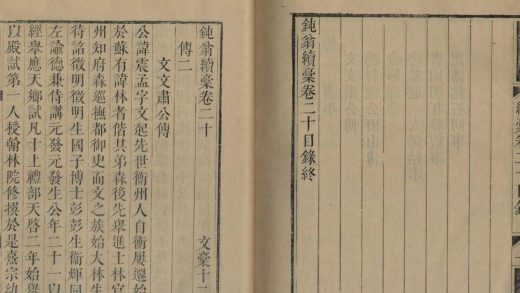 鈍翁續稾卷二十目錄終
鈍翁續稾卷二十 文稾十二
傳二
文文肅公傳
公諱震孟字文起先世衡州人自衡屢遷始
於蘇有諱林者偕其弟森後先舉進士林官
州知府森巡撫都御史而文之族始大林生
待詔徵明徵明生國子博士彭彭生衞輝同
左諭德兼侍講元發元發生公年二十一以
經舉應天鄕試凡十上禮部天啓二年始舉
以殿試第一人授翰林院修撰於是熹宗幼